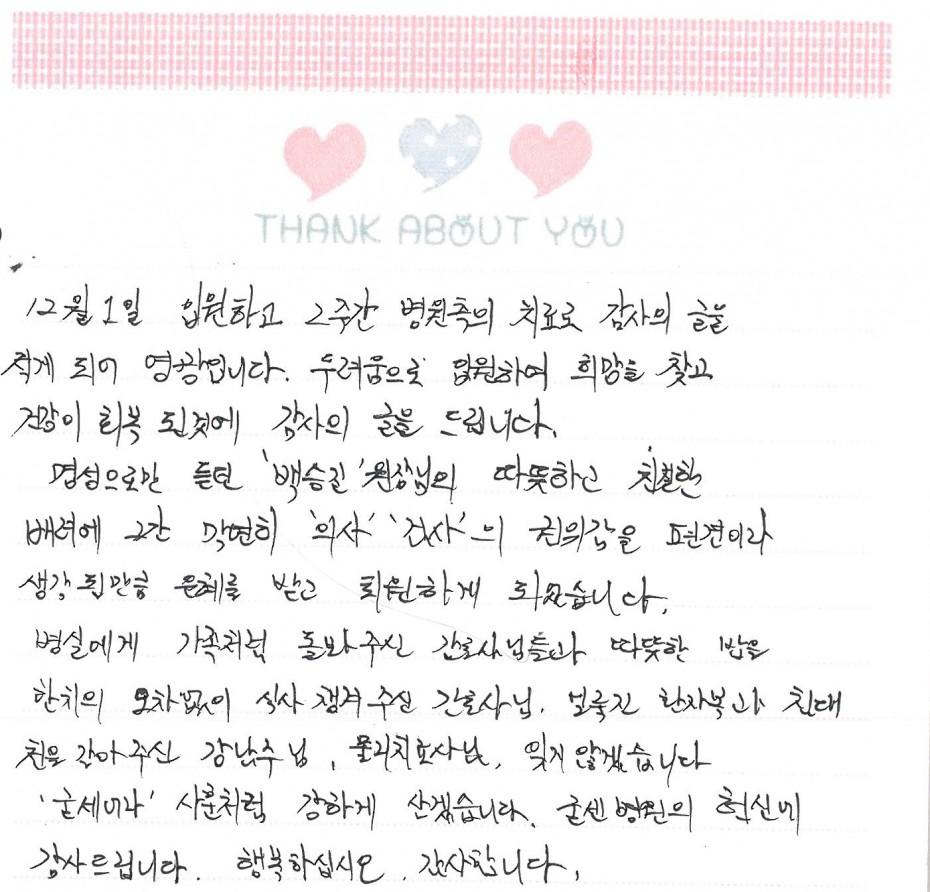 THANK ABOUT YOU
12월 1일 입원하고 2주간 병원측의 치료로 감사의 글을
적게 되어 영광입니다. 두려움으로 입원하여 희망을 찾고
건강이 회복 된것에 감사의 글을 드립니다.
명성으로만 듣던 '백승길' 원장님의 따뜻하고 친절한
배려에 그간 막연히 '의사' '검사'의 권위감을 편견이라
생각 될만큼 은혜를 받고 퇴원하게 되었습니다.
병실에게 가족처럼 돌봐주신 간호사님들과 따뜻한 밥을
한치의 오차없이 식사 챙겨주신 간호사님. 얼룩진 환자복과 침대
천을 갈아주신 강난수님, 물리치료사님, 잊지 않겠습니다
'굳세어라' 사훈처럼 강하게 살겠습니다. 굳센병원의 헌신에
감사드립니다. 행복하십시오. 감사합니다.